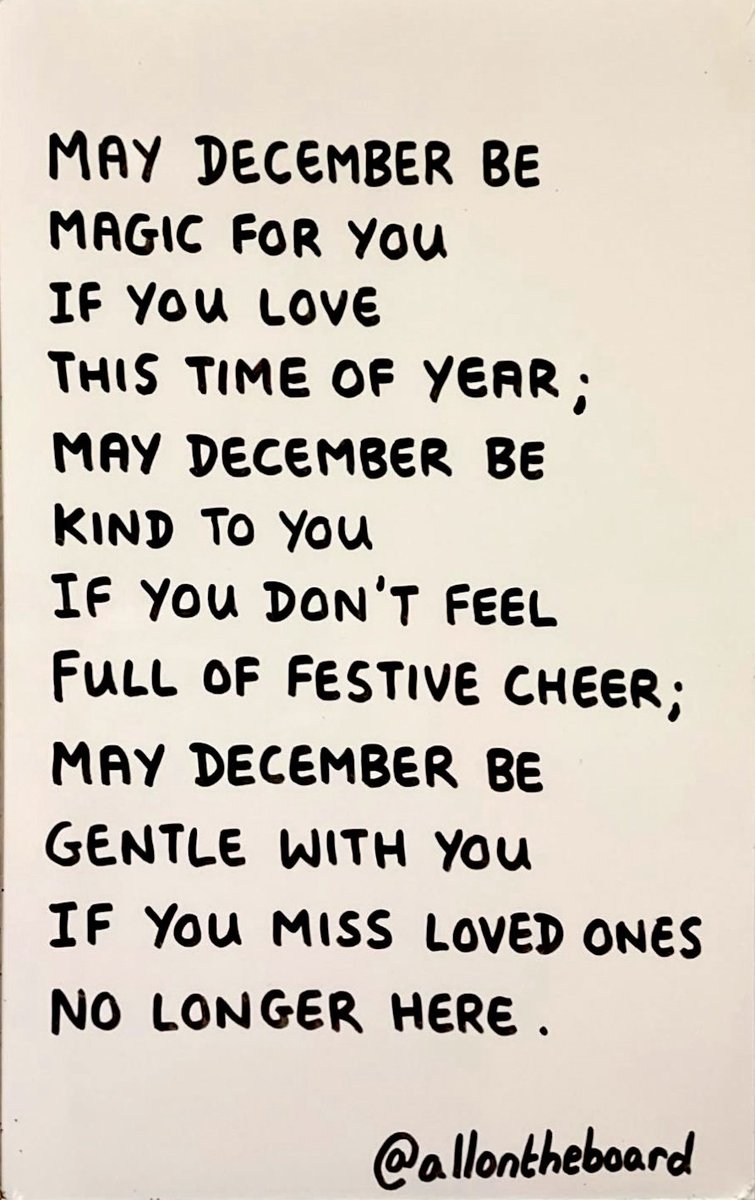 MAY DECEMBER BE
MAGIC FOR YOU
IF YOU LOVE
THIS TIME OF YEAR;
MAY DECEMBER BE
KIND TO YOU
IF YOU DON'T FEEL
FULL OF FESTIVE CHEER;
MAY DECEMBER BE
GENTLE WITH YOU
IF YOU MISS LOVED ONES
NO LONGER HERE.
@allontheboard